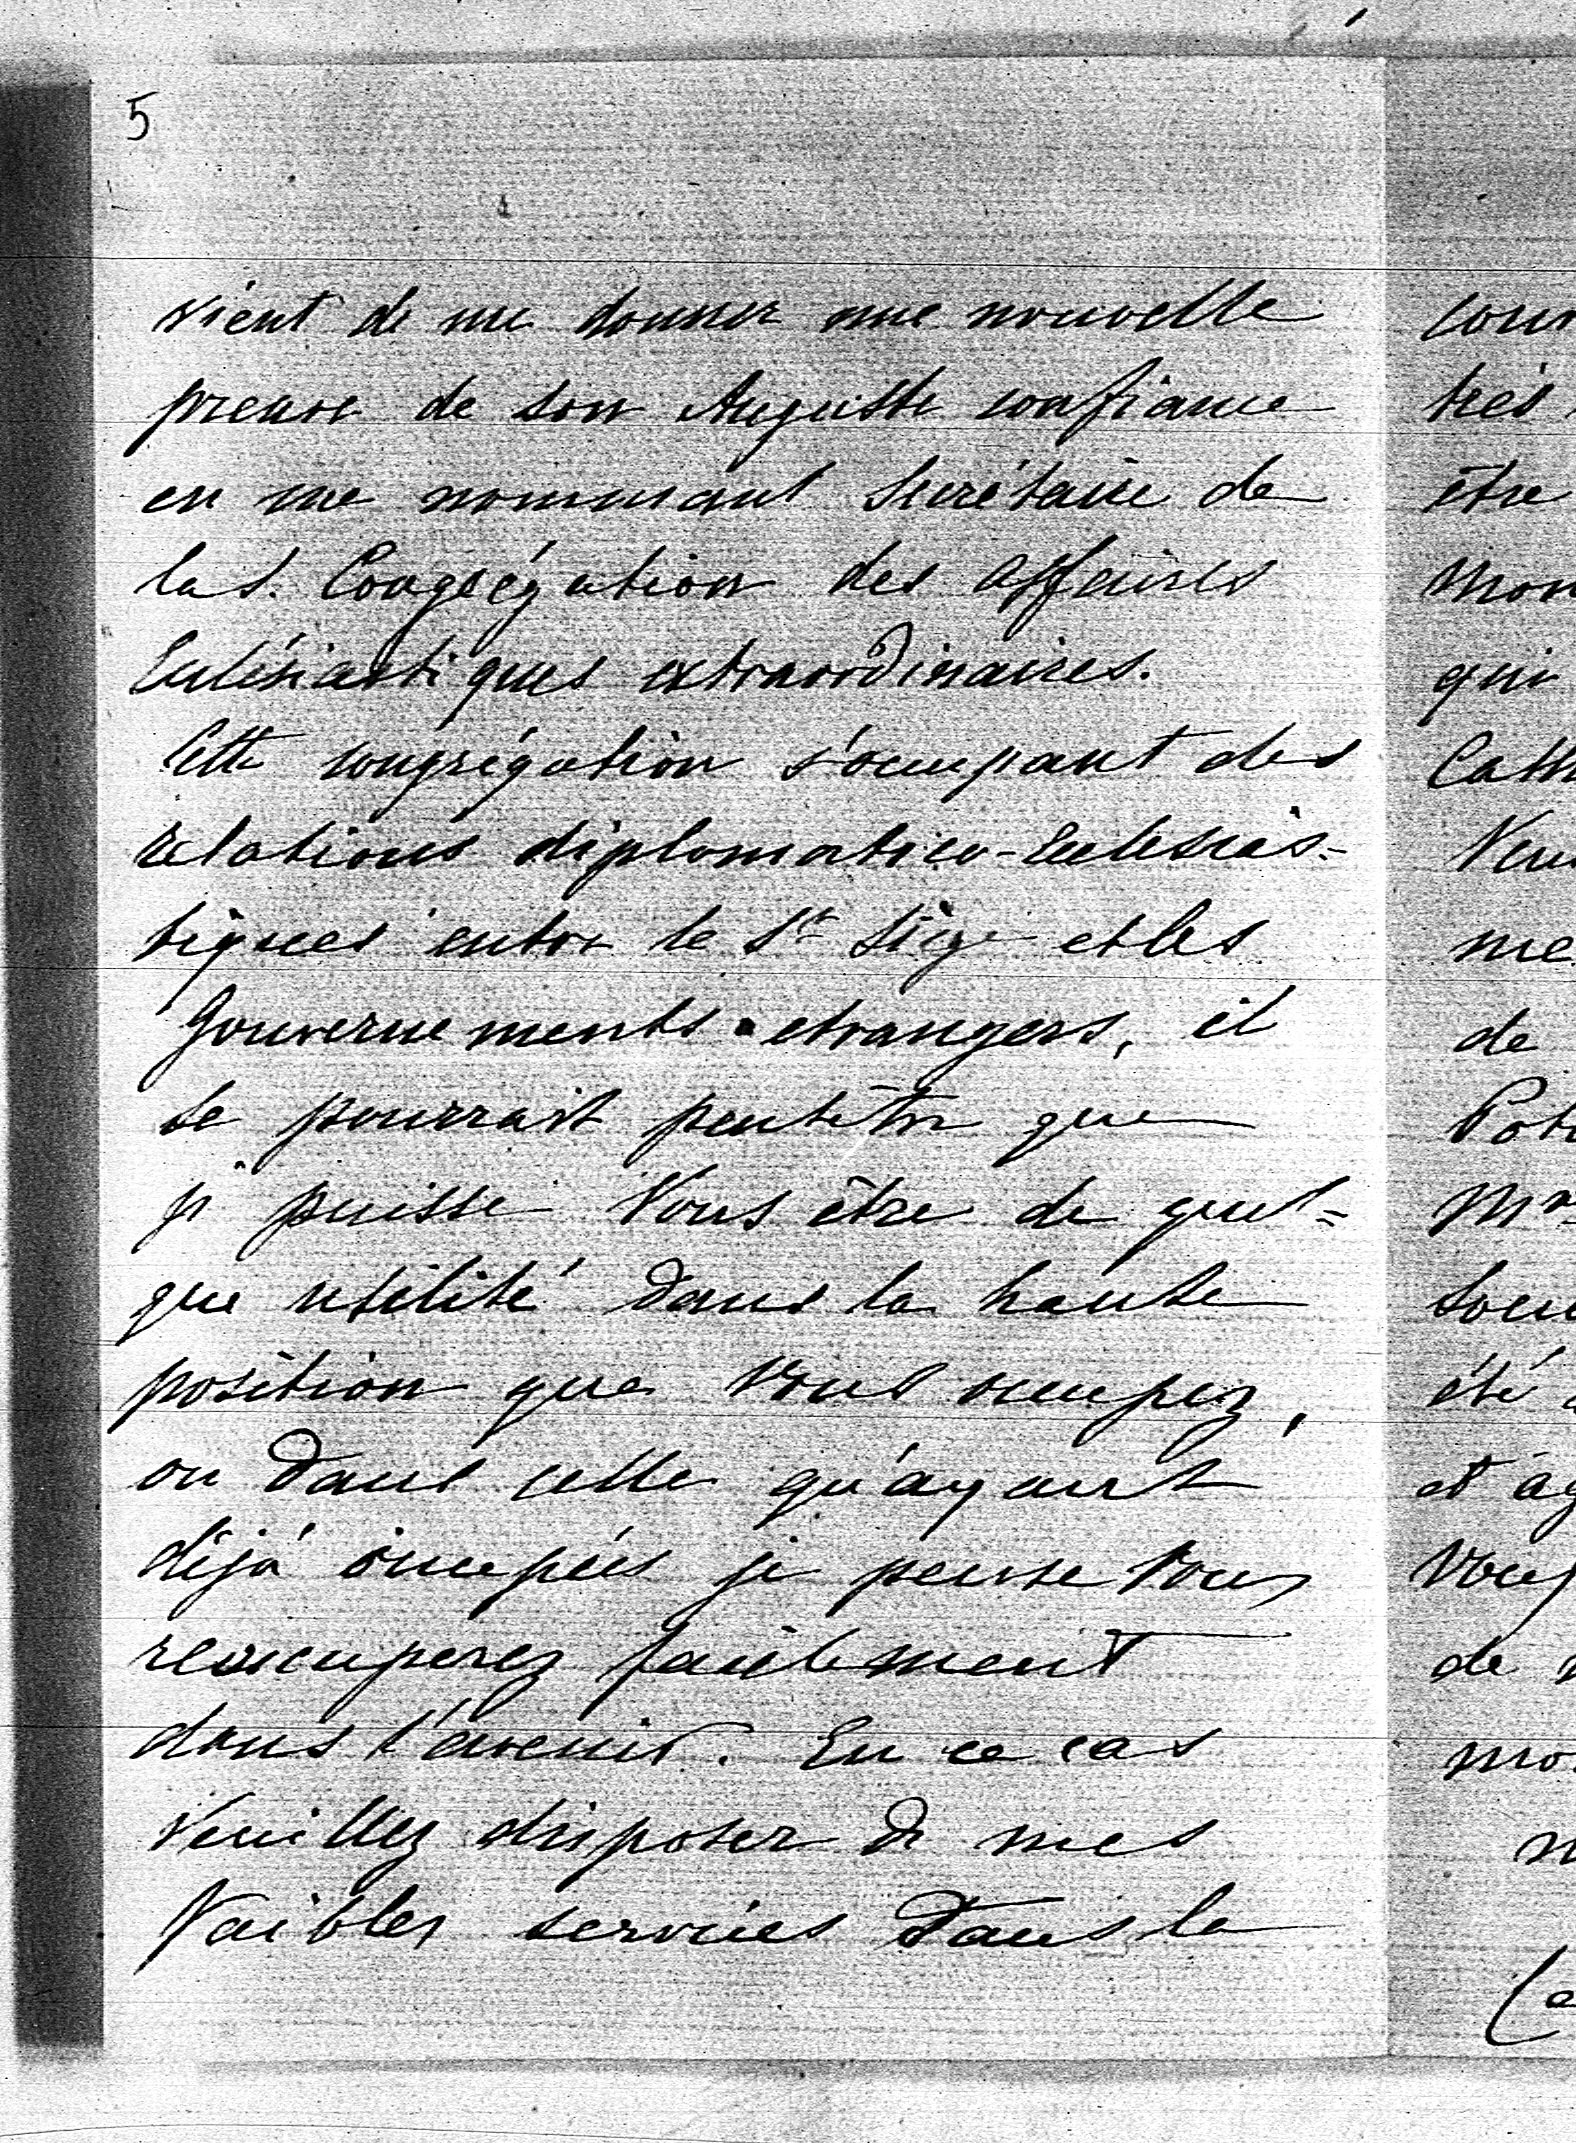 5
vient de me donner une nouvelle
preuve de son Auguste confiance
en me nommant Secrétaire de
la S. Congrégation des Affaires
Ecclésiastiques extraordinaires.
Cette congrégation s'occupant des
relations diplomatico-Ecclesias=
tiques entre le St Siège et les
Gouvernements etrangers, il
se pourrait peutêtre que
je puisse Vous être de quel=
que utilité dans la haute
position que Vous occupez,
ou dans celle qu'ayant
déjà occupée je pense Vous
reoccuperez facilement
dans l'avenir. En ce cas
Veuillez disposer de mes
faibles services dans la
cour
très
être
Mon
qui
Cath
Veu
me
de
Pot
Mr
été a
et ag
Vous
de
mo